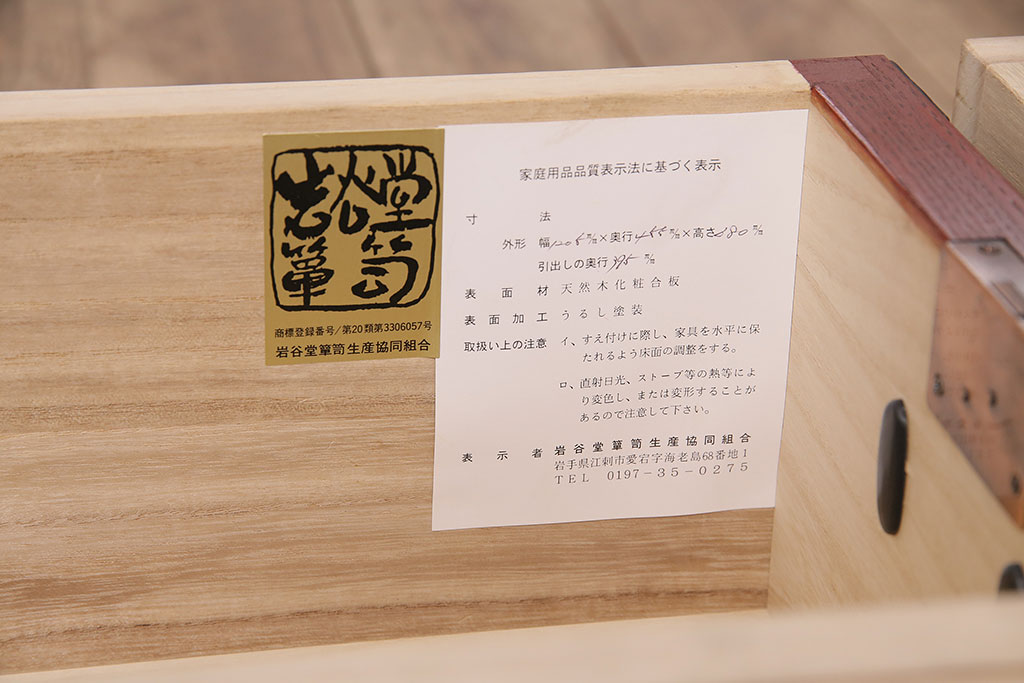 岩谷堂
簞笥
商標登録番号/第20類第3306057号
岩谷堂簞笥生産協同組合
家庭用品品質表示法に基づく表示
寸法
外形 幅1205㍉×奥行455㍉×高さ880㍉
引出しの奥行395㍉
表面材 天然木化粧合板
表面加工 うるし塗装
取扱い上の注意 イ、すえ付けに際し、家具を水平に保
たれるよう床面の調整をする。
ロ、直射日光、ストーブ等の熱等によ
り変色し、または変形することが
あるので注意して下さい。
表示者 岩谷堂簞笥生産協同組合
岩手県江刺市愛宕字海老島68番地1
TEL 0197-35-0275